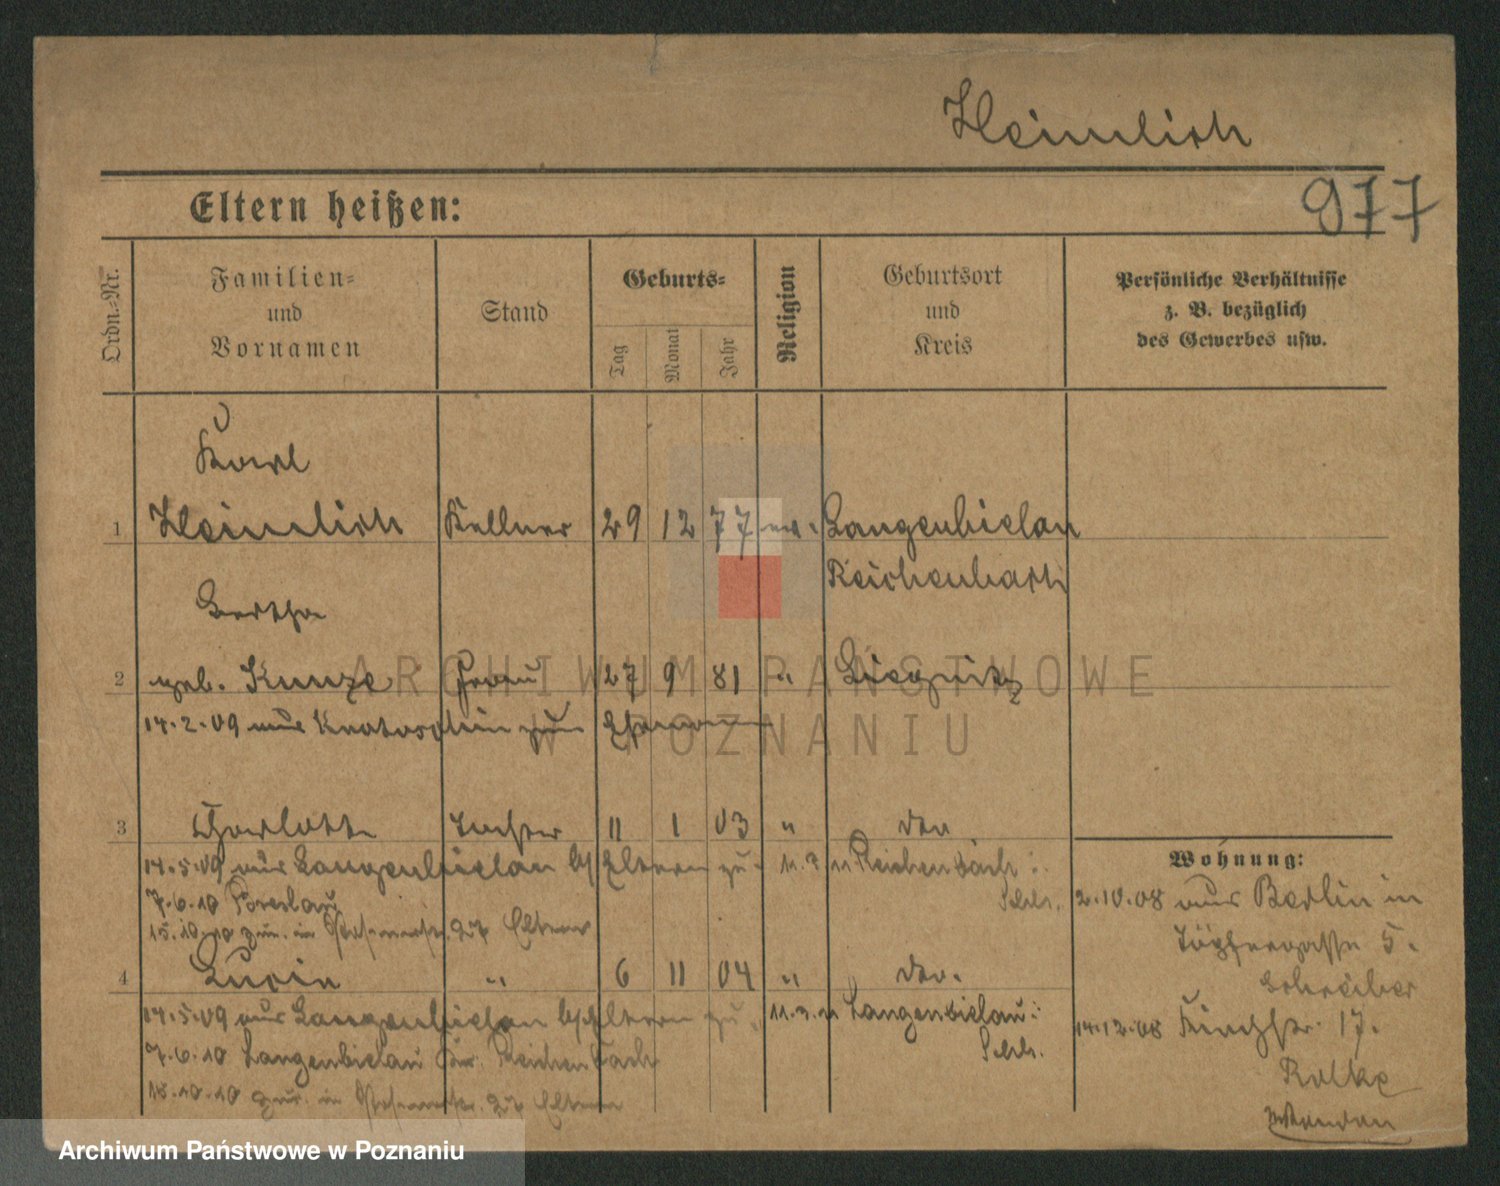 Heimlich
977
Eltern heißen:
Ordn.-Nr.
Familien-
und
Vornamen
Stand
Geburts-
Tag
Monat
Jahr
Religion
Geburtsort
und
Kreis
Persönliche Verhältnisse
z. B. bezüglich
des Gewerbes usw.
Karl
1 Heimlich Kellner 29 12 77 ev. Langenbielau
Reichenbach
Bertha
2 geb. Kunze Frau 27 9 81 " Liegnitz
14.2.09 aus Krotoschin zum Ehemann
3 Charlotte Tochter 11 1 03 "
14.5.09 aus Langenbielau b/ Eltern zu. 11. n Reichenbach
Schls.
7.6.10 Breslau
15.10.10 zur. in zu Eltern
4 Lucie " 6 11 04 "
14.5.09 aus Langenbielau b/ Eltern zu. 11. n Langenbielau
Schls.
7.6.10 Langenbielau Kr. Reichenbach
18.10.10 zur. in zu Eltern
Wohnung:
2.10.08 aus Berlin in
Töpfergasse 5.
Schreiber
14.12.08 17.
ARCHIWUM PAŃSTWOWE
W POZNANIU
Archiwum Państwowe w Poznaniu